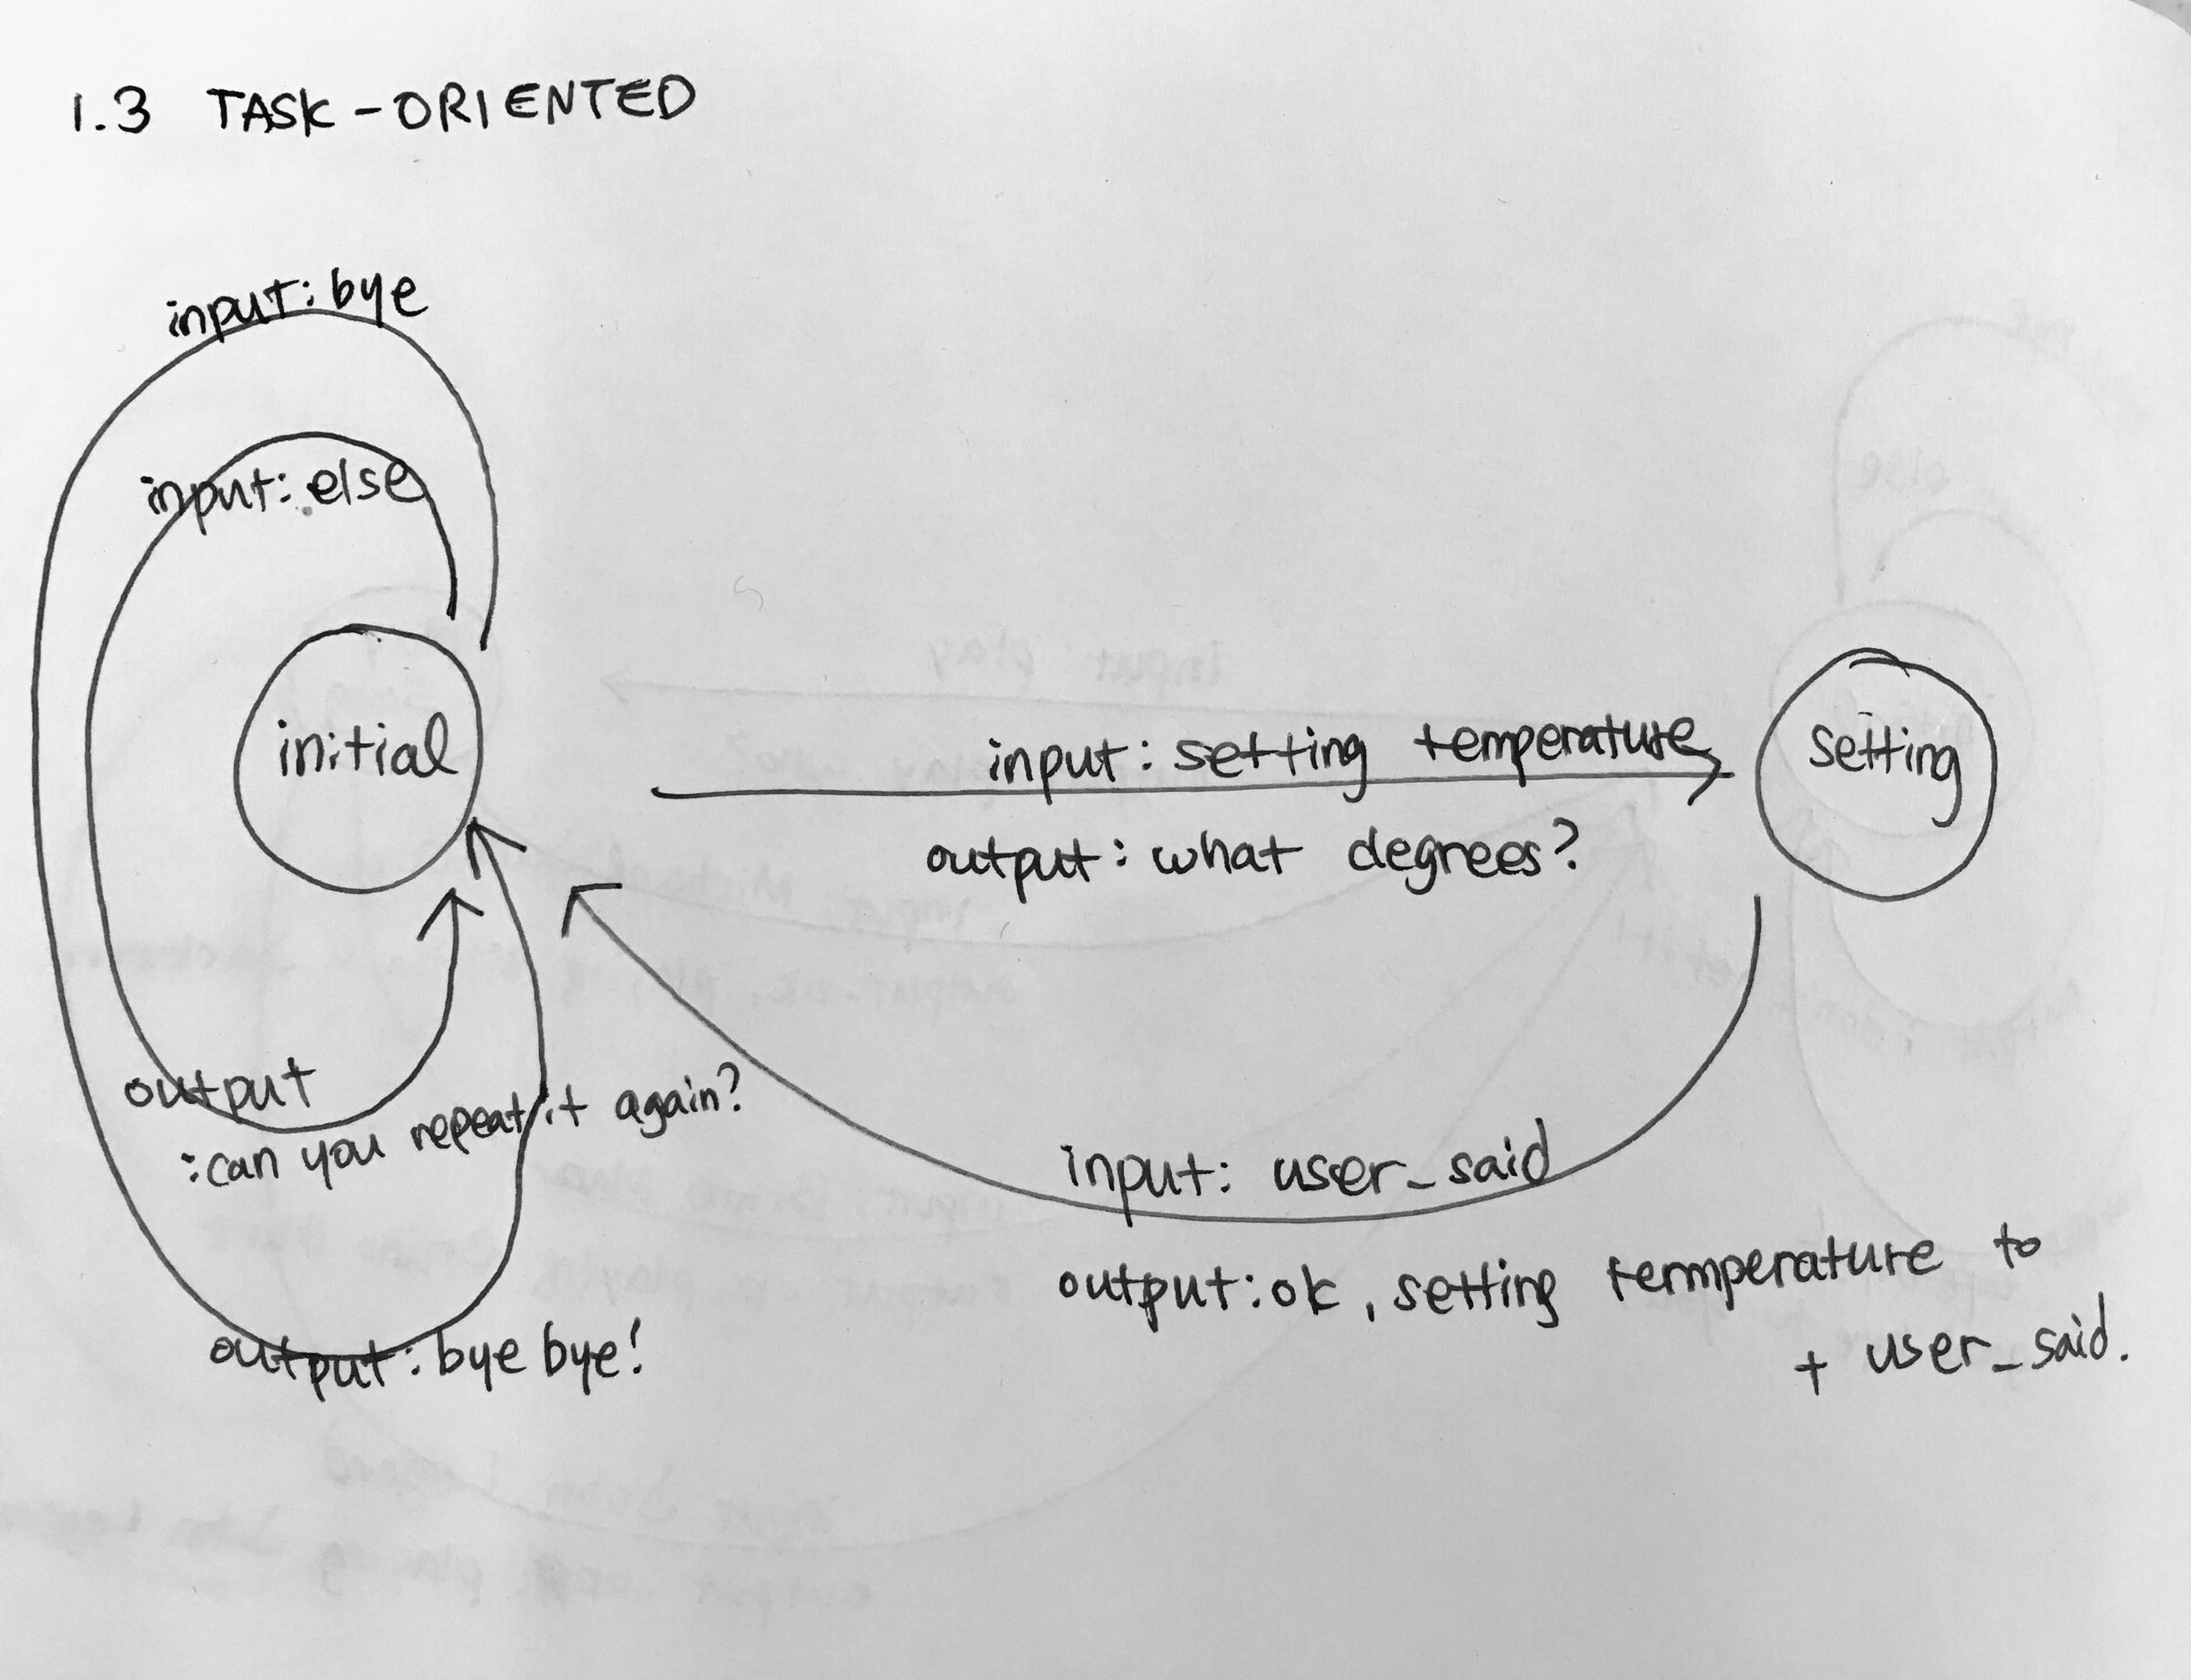 1.3 TASK-ORIENTED
input: bye
input: else
initial
input: setting temperature
setting
output: what degrees?
output
:can you repeat it again?
input: user_said
output: ok, setting termperature to
+ user_said.
output: bye bye!
input: play
else